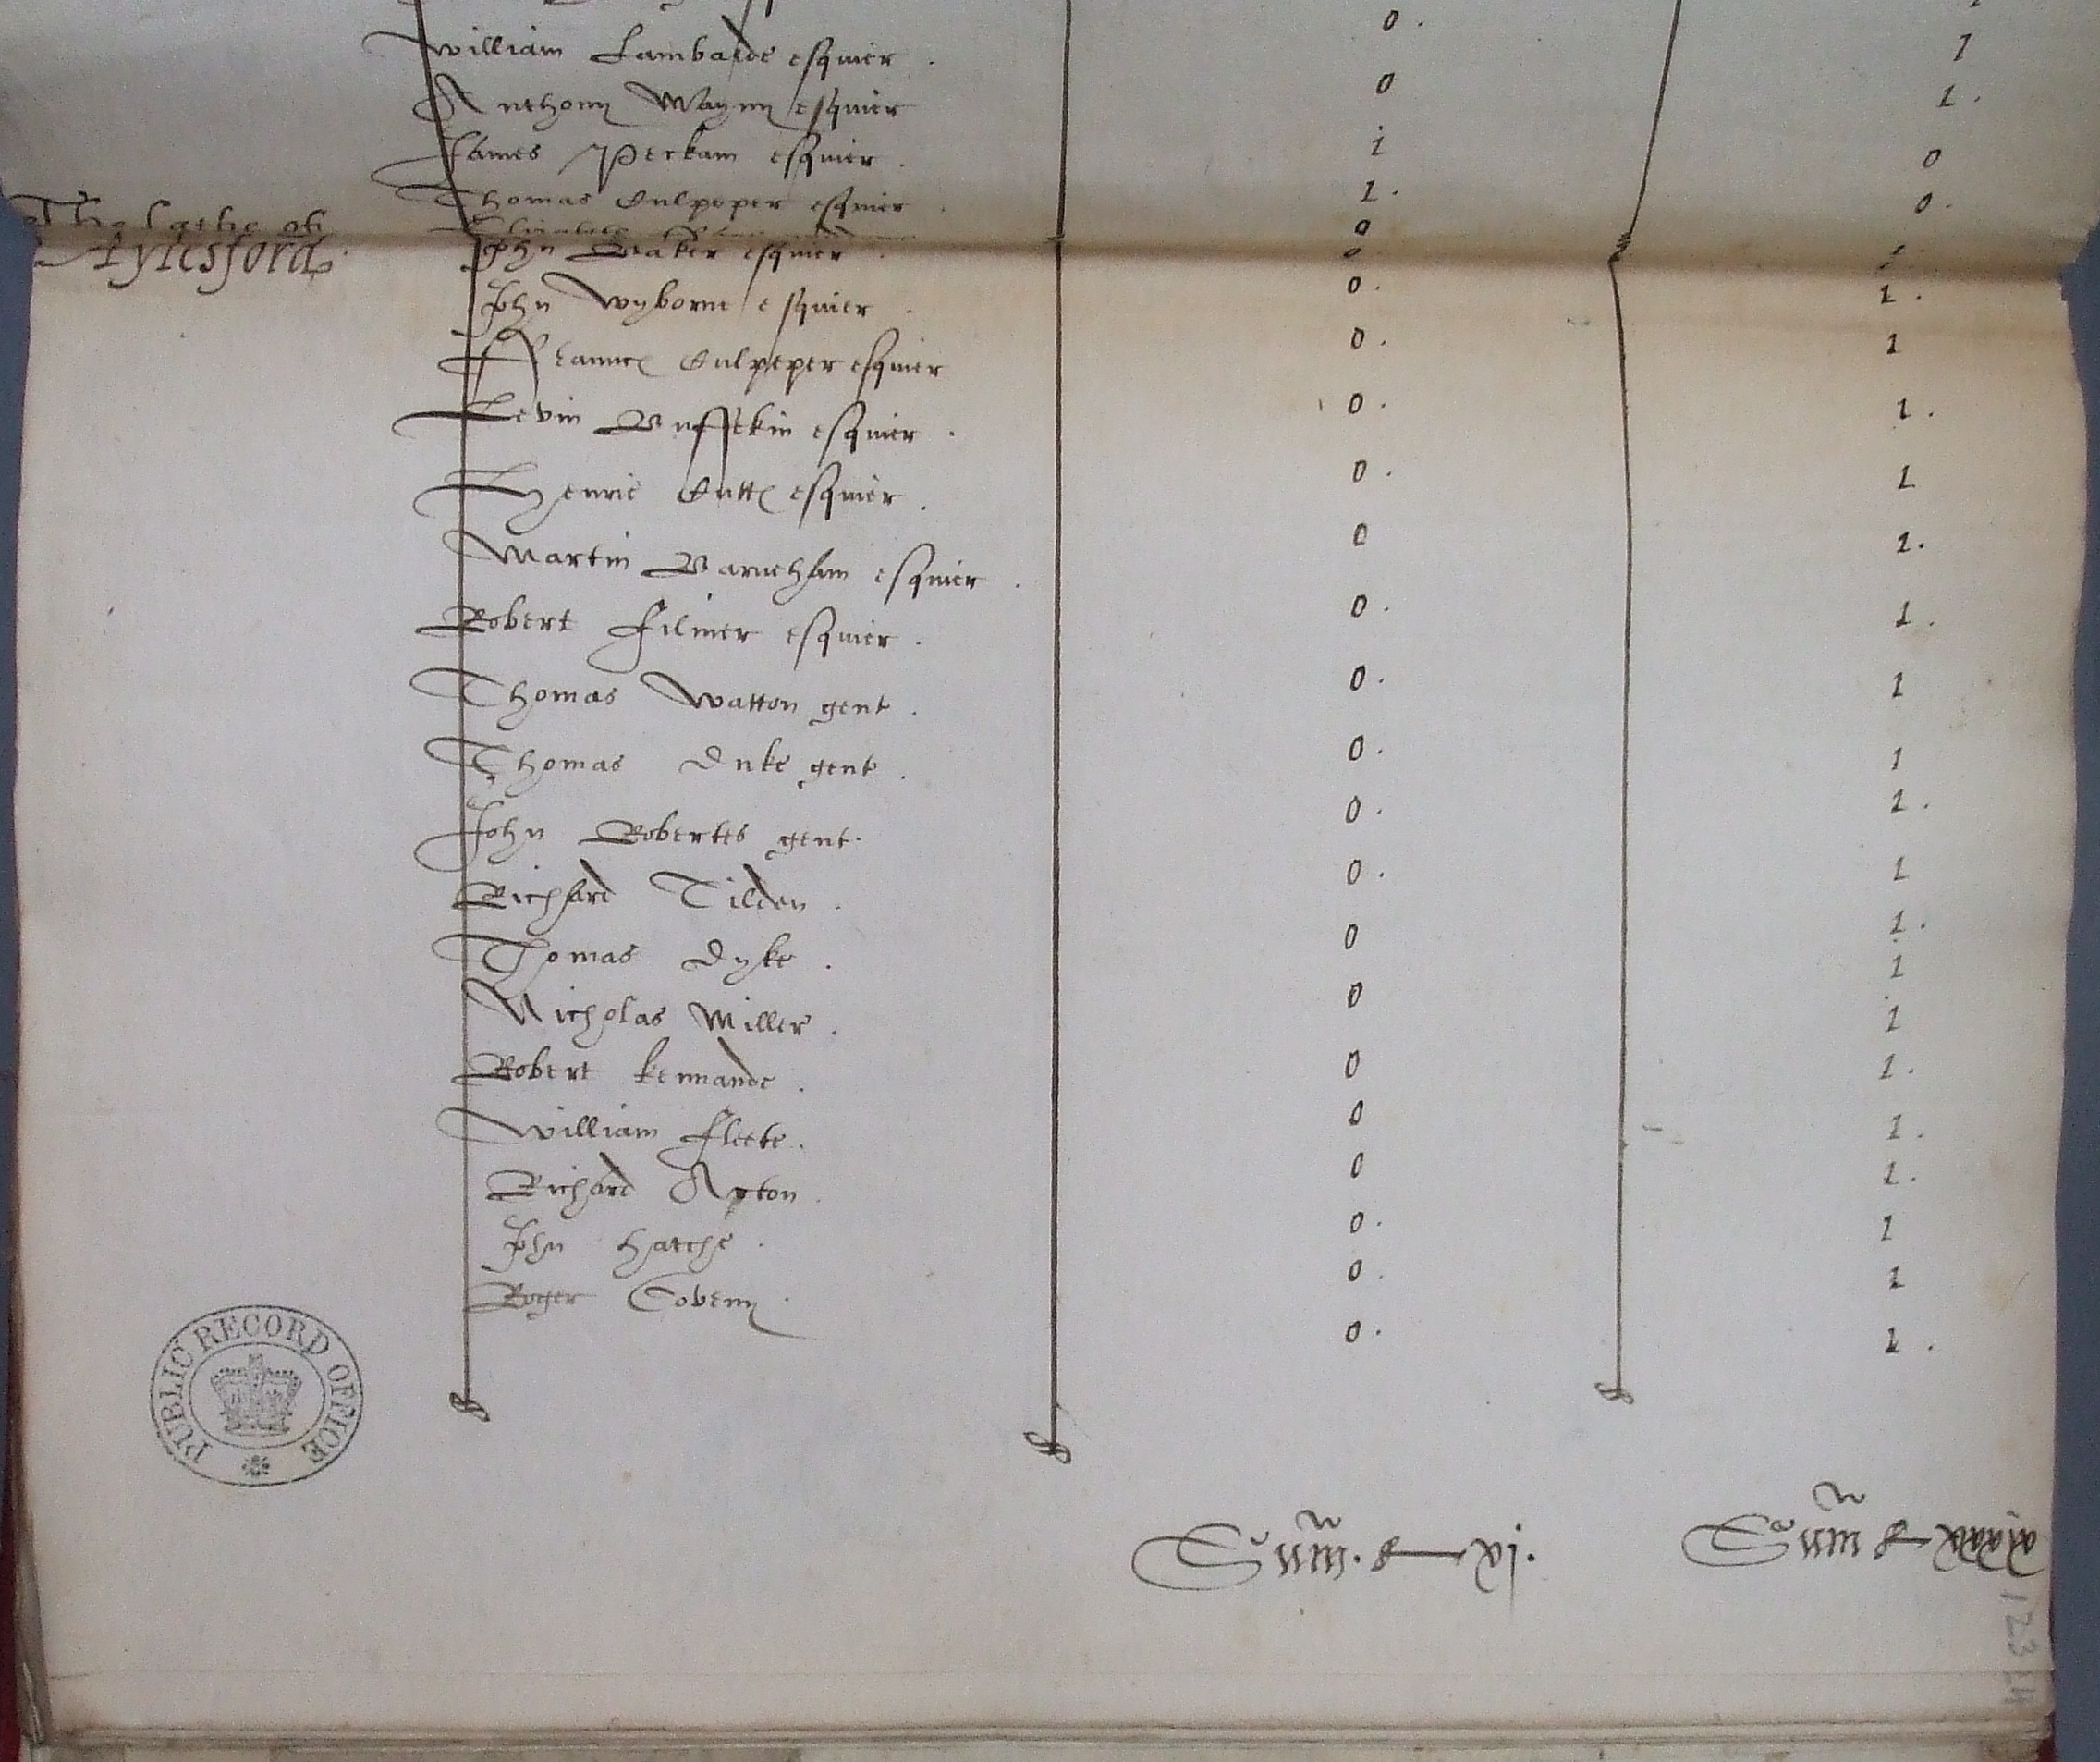 william Lambarde esquier . 0 . 1
Anthony Mayny esquier 0 1 .
James Peckam esquier . i 0
Thomas Culpeper esquier . 1 . 0 .
The Lathe of 0
Aylesford John Baker esquier . 0 1
John wyborne esquier . 0 . 1 .
Frauncis Culpeper esquier 0 . 1
Levin Buffkin esquier . 0 . 1 .
Henrie Cutts esquier . 0 . 1
Martin Barneham esquier . 0 1 .
Robert Filmer esquier . 0 . 1 .
Thomas watton gent . 0 . 1
Thomas Duke gent . 0 . 1
John Robertes gent . 0 . 1 .
Richard Tilden . 0 . 1
Thomas Dyke . 0 1 .
Nicholas Miller . 0 1
Robert kennarde . 0 1
william Fleete . 0 1 .
Richard 0 1 .
John Hatche . 0 . 1 .
Roger Coveny . 0 . 1
0 . 1
1 .
Summ . xj . Summ
PUBLIC RECORD OFFICE
123